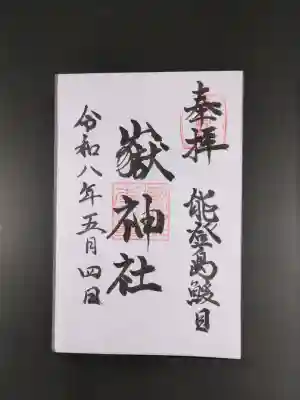 奉拝 能登島鰀目
嶽神社
令和八年五月四日